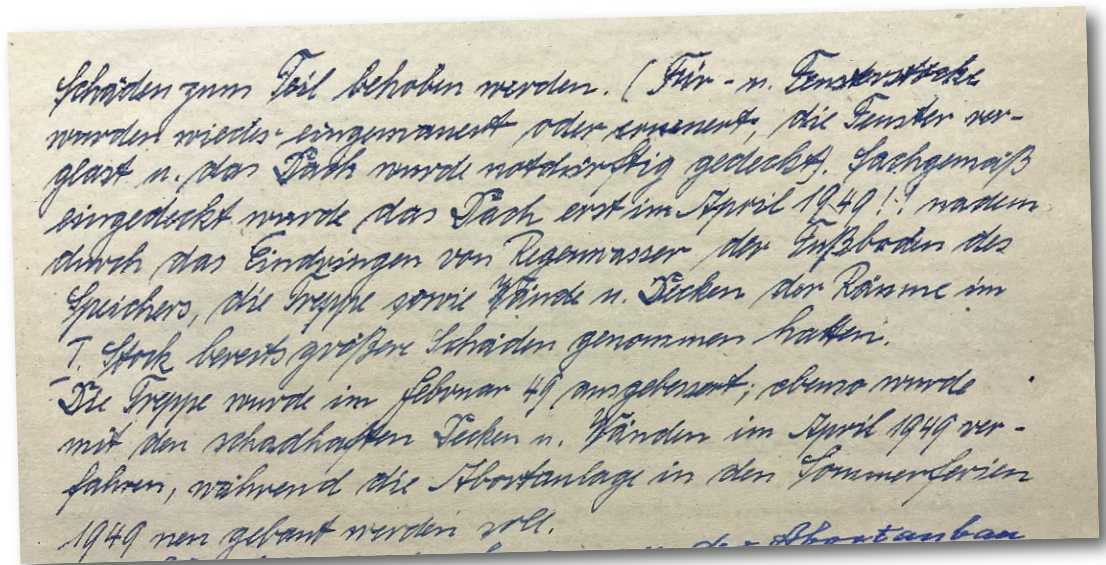 Schäden zum Teil behoben werden. (Tür- u. Fensterstöcke
wurden wieder eingemauert oder erneuert, die Fenster ver-
glast u. das Dach wurde notdürftig gedeckt). Sachgemäß
eingedeckt wurde das Dach erst im April 1949!! nadem
durch das Eindringen von Regenwasser der Fußboden des
Speichers, die Treppe sowie Wände u. Decken der Räume im
I. Stock bereits größere Schäden genommen hatten.
Die Treppe wurde im Februar 49 ausgebessert; ebenso wurde
mit den schadhaften Decken u. Wänden im April 1949 ver-
fahren, während die Abortanlage in den Sommerferien
1949 neu gebaut werden soll.
der Abortanbau